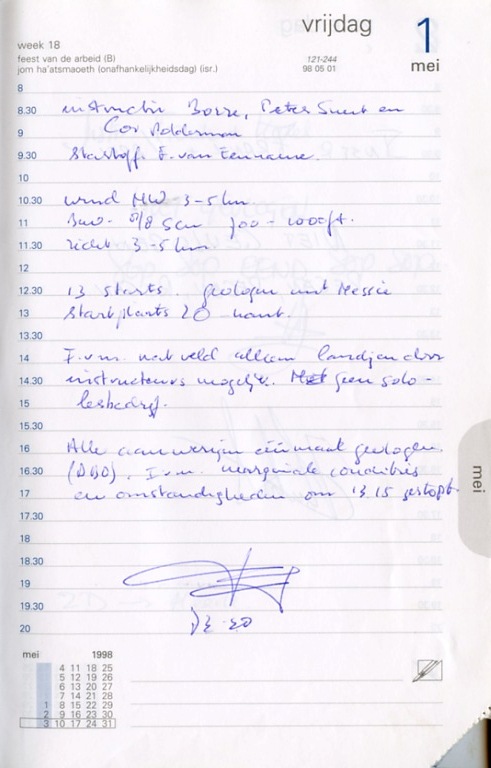 vrijdag 1
week 18
feest van de arbeid (B)
jom ha'atsmaoeth (onafhankelijkheidsdag) (isr.)
121-244
98 05 01
mei
8
8.30 instructie Borre, Peter en
9 Cor Polderman
9.30 Startoff. F. van
10
10.30 wind NW 3-5 kn
11 8/8 Scu 700-1000ft.
11.30 zicht 3-5 km
12
12.30 13 starts. gevlogen met Messie
13 Startplaats 20-kant.
13.30
14 I.v.m. nat veld alleen landjen door
14.30 instructeurs mogelijk. geen solo-
15 lesbedrijf.
15.30
16 Alle aanwezigen éénmaal gevlogen
16.30 (DBO). I.v.m. marginale condities
17 en omstandigheden om 13.15 gestopt.
17.30
18
18.30
19
19.30
20
mei 1998
4 11 18 25
5 12 19 26
6 13 20 27
7 14 21 28
1 8 15 22 29
2 9 16 23 30
3 10 17 24 31
mei